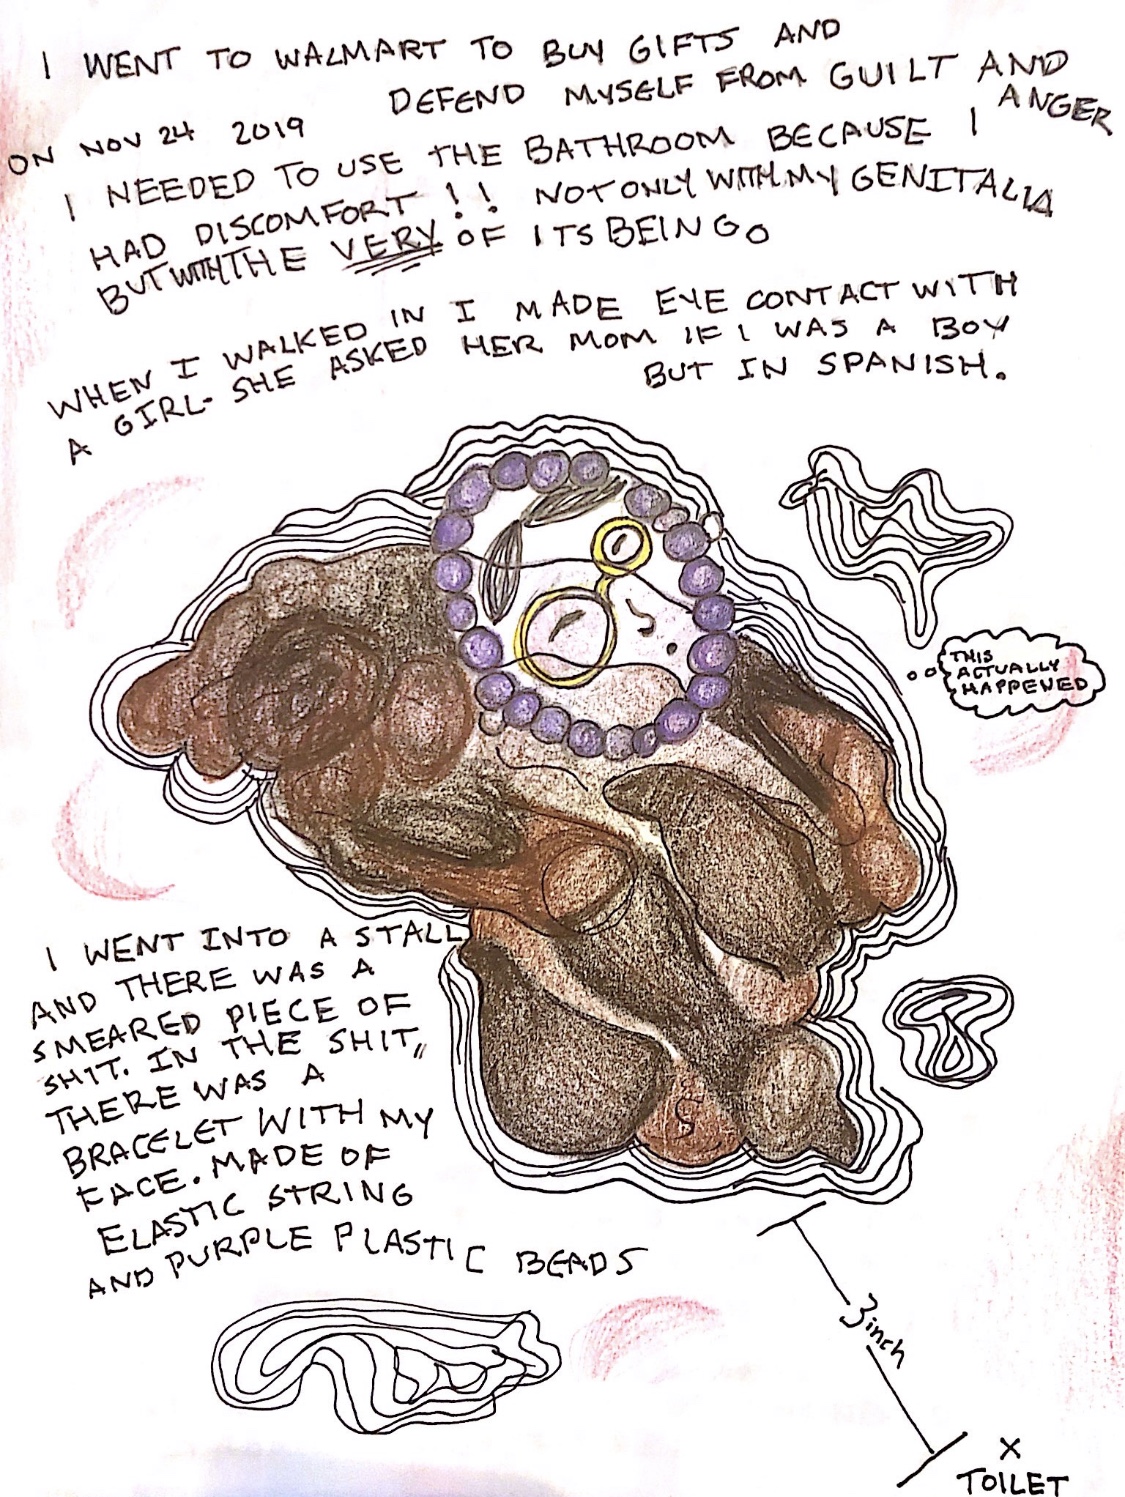 I WENT TO WALMART TO BUY GIFTS AND
DEFEND MYSELF FROM GUILT AND
ANGER
ON NOV 24 2019
I NEEDED TO USE THE BATHROOM BECAUSE I
HAD DISCOMFORT!! NOT ONLY WITH MY GENITALIA
BUT WITH THE VERY OF ITS BEING.
WHEN I WALKED IN I MADE EYE CONTACT WITH
A GIRL- SHE ASKED HER MOM IF I WAS A BOY
BUT IN SPANISH.
THIS
ACTUALLY
HAPPENED
I WENT INTO A STALL
AND THERE WAS A
SMEARED PIECE OF
SHIT. IN THE SHIT,,
THERE WAS A
BRACELET WITH MY
FACE. MADE OF
ELASTIC STRING
AND PURPLE PLASTIC BEADS
3inch
X
TOILET